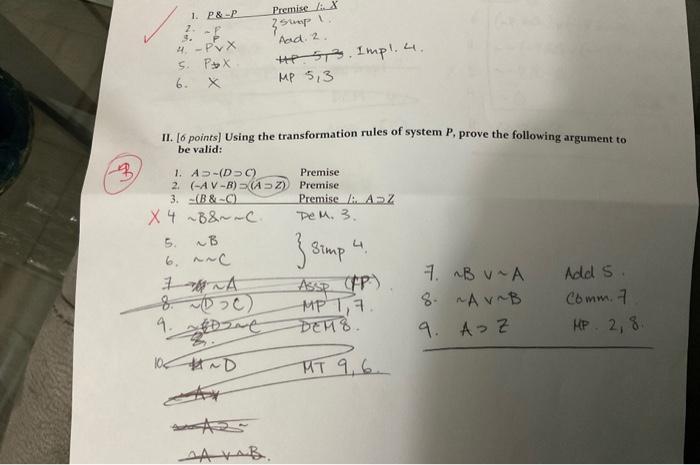 1. P&~P Premise /∴ X
2. ~P } Simp 1.
3. P
4. ~P∨X Add. 2.
5. P⊃X MP 5,3. Impl. 4.
6. X MP 5,3
II. [6 points] Using the transformation rules of system P, prove the following argument to
be valid:
-3
1. A⊃~(D⊃C) Premise
2. (~A∨~B)⊃(A⊃Z) Premise
3. ~(B&~C) Premise /∴ A⊃Z
X 4 ~B&~~C. DeM. 3.
5. ~B } Simp 4.
6. ~~C
7 ~A Assp (IP)
8. ~(D⊃C) MP 1,7.
9. ~D⊃~C DEM 8.
10. ~D MT 9,6.
A∨
A⊃
~A∨~B.
7. ~B∨~A Add 5.
8. ~A∨~B Comm. 7
9. A⊃Z MP. 2,8.